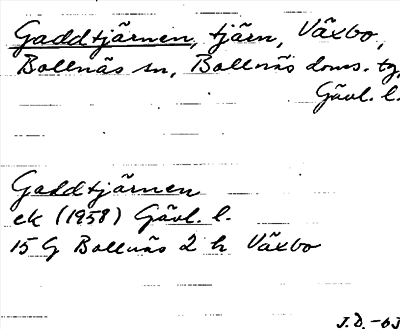 Gaddtjärnen, tjärn, Växbo,
Bollnäs sn, Bollnäs doms. tg,
Gävl. l.
Gaddtjärnen
ek (1958) Gävl. l.
15 G Bollnäs 2 h Växbo
J.D. -63